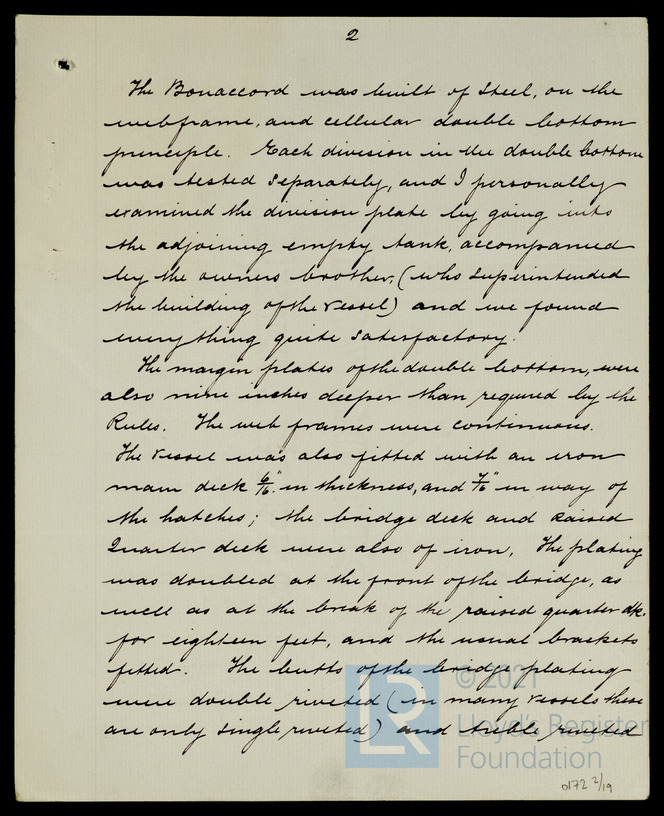 2
The Bonaccord was built of Steel, on the
webframe, and cellular double bottom
principle. Each division in the double bottom
was tested separately, and I personally
examined the division plate by going into
the adjoining empty tank, accompanied
by the owners brother, (who superintended
the building of the vessel) and we found
everything quite satisfactory.
The margin plates of the double bottom, were
also nine inches deeper than required by the
Rules. The web frames were continuous.
The vessel was also fitted with an iron
main deck 6/16" in thickness, and 7/16" in way of
the hatches; the bridge deck and Raised
Quarter deck were also of iron. The plating
was doubled at the front of the bridge, as
well as at the break of the raised quarter dk.
for eighteen feet, and the usual brackets
fitted. The butts of the bridge plating
were double riveted (in many vessels these
are only single riveted) and treble riveted
© 2021
LR
Lloyd's Register
Foundation
0172 2/19